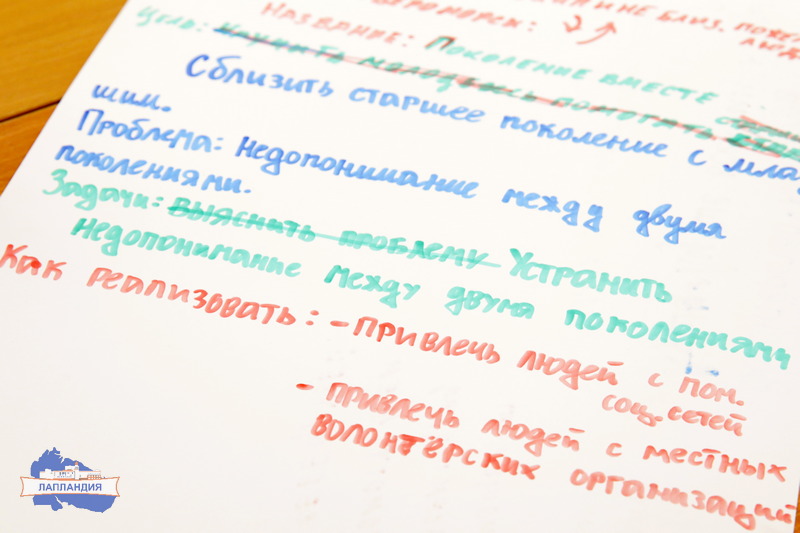 и не близ. поже
людя
Североморск:
Название: Поколение вместе
Цель: Научить молодёжь помогать
Сблизить старшее поколение с млад
шим.
Проблема: Недопонимание между двумя
поколениями.
Задачи: Выяснить проблему Устранить
Недопонимание между двумя поколениями
Как реализовать: - Привлечь людей с пом.
соц. сетей
- привлечь людей с местных
волонтёрских организаций
ЛАПЛАНДИЯ